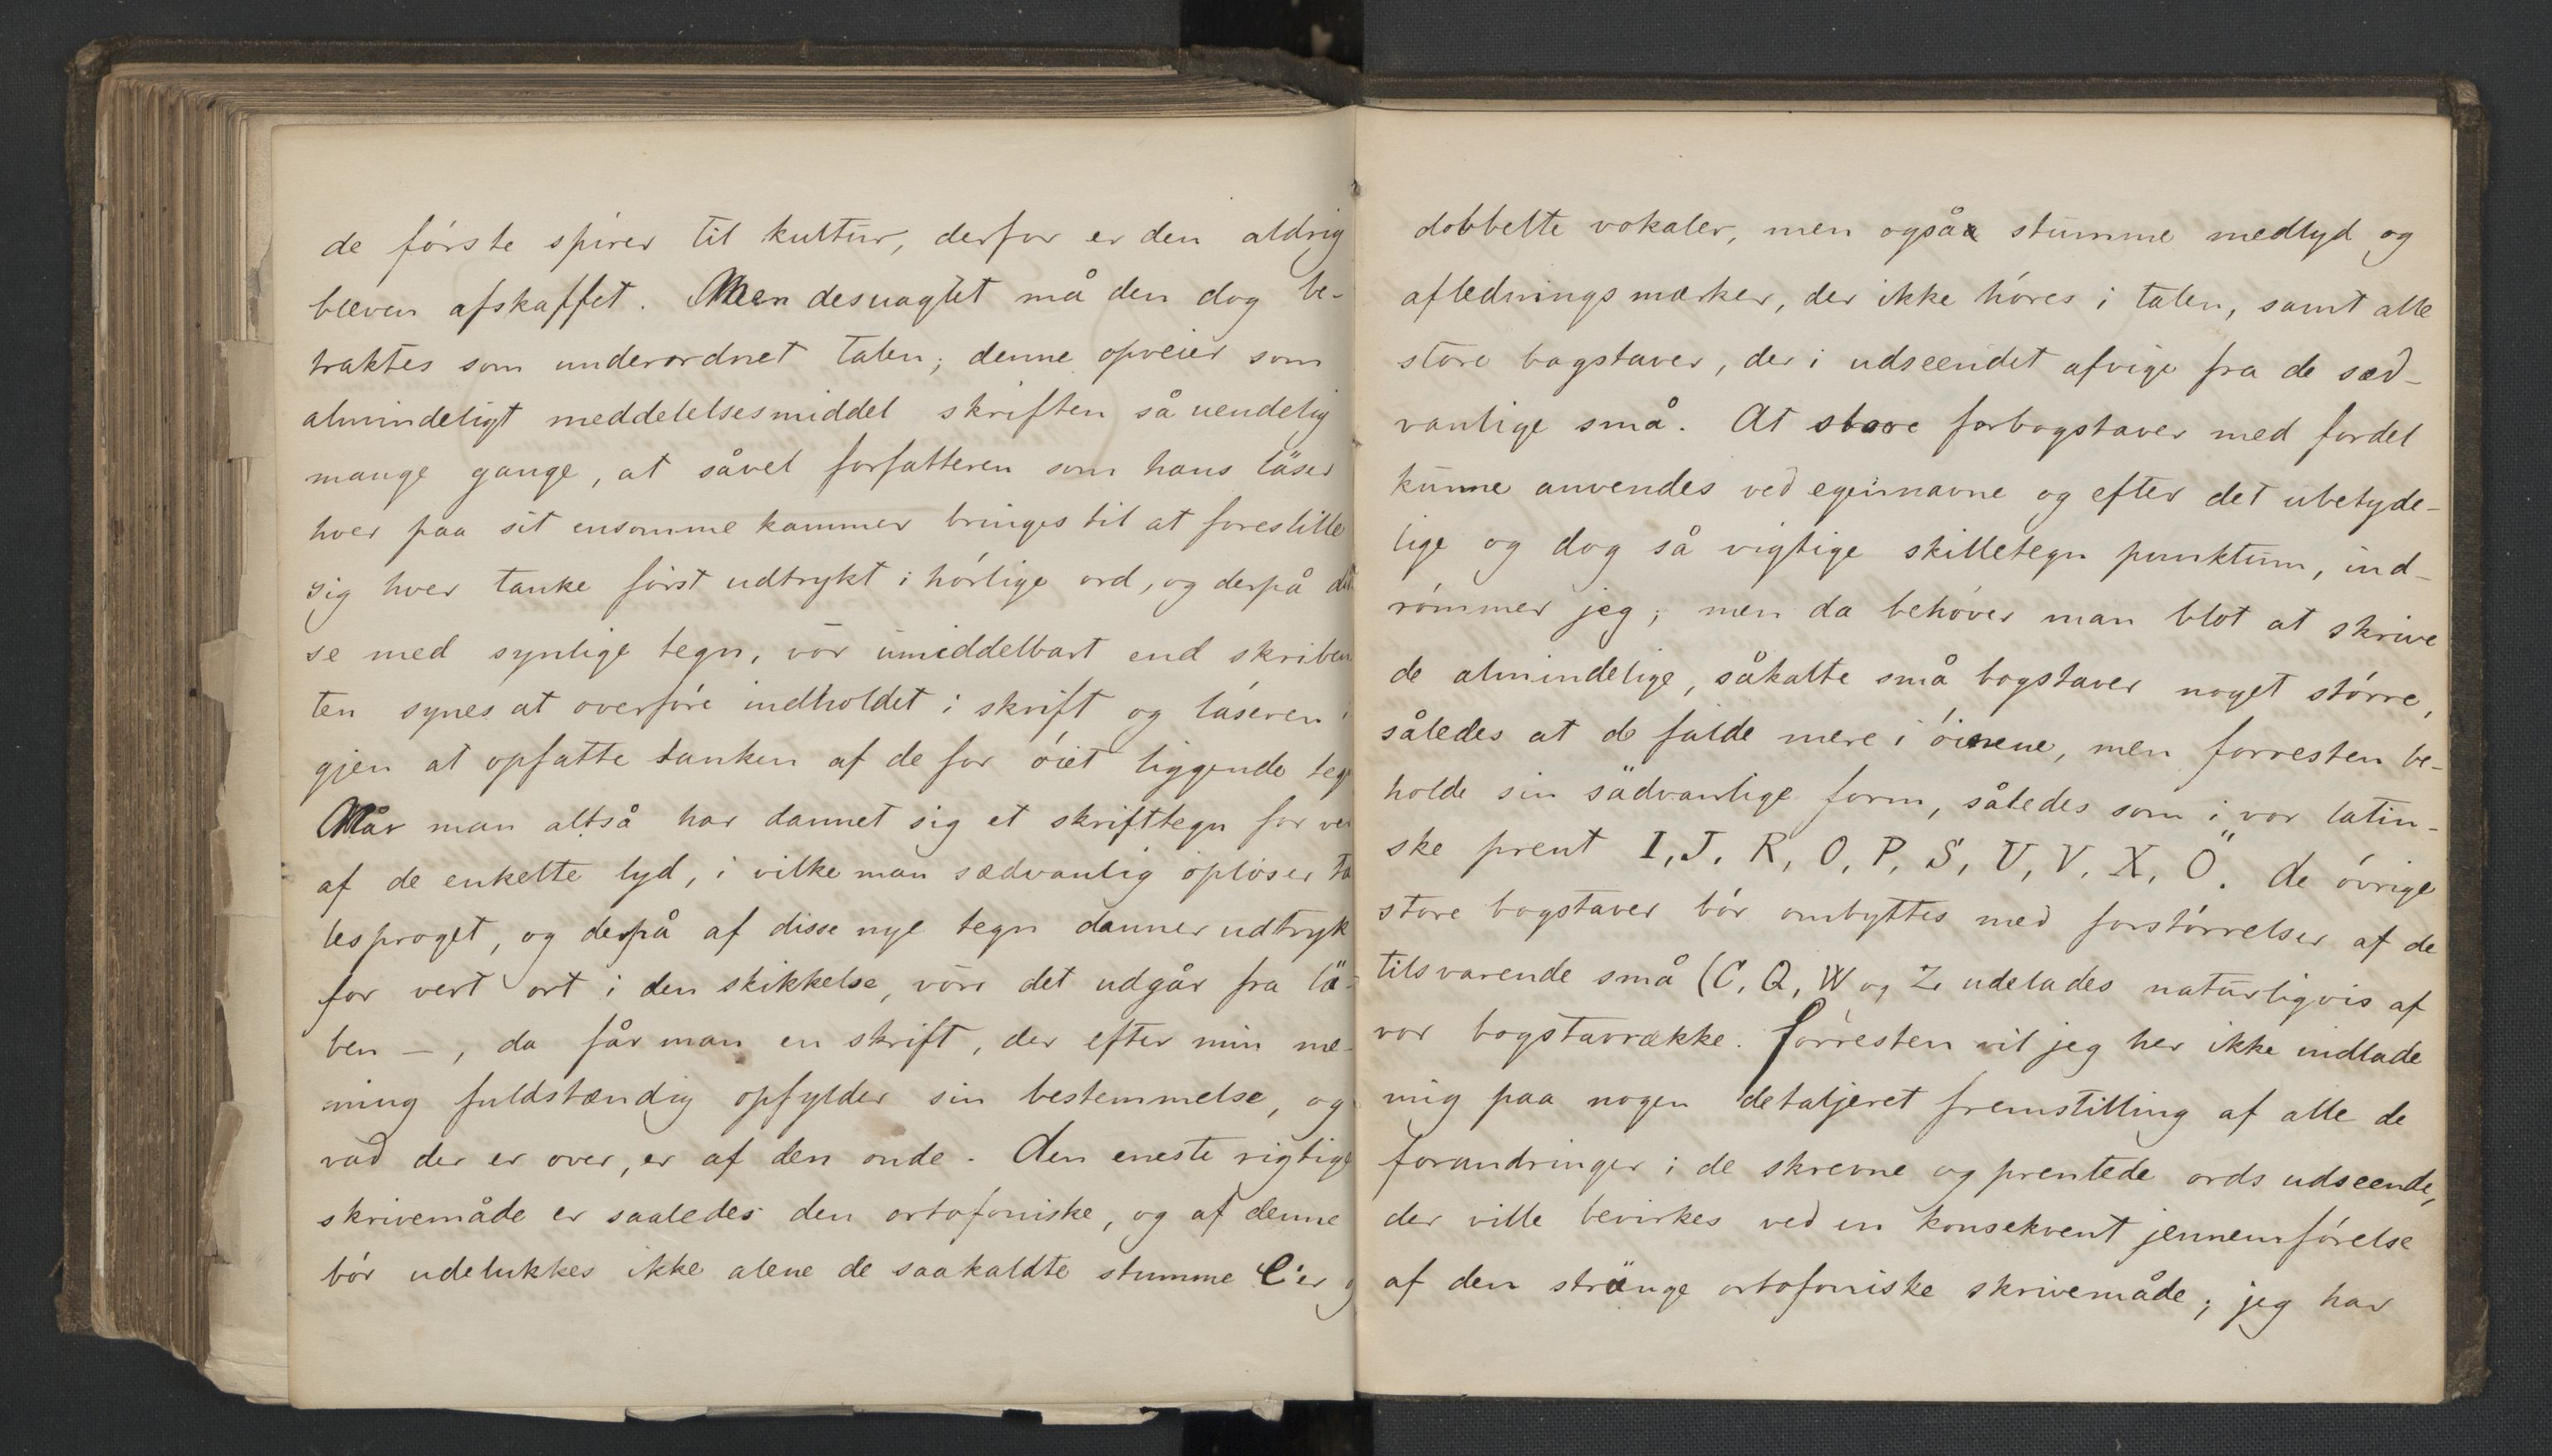 de fórste spirer til kultur, derfor er den aldrig
bleven afskaffet. Men desuagtet må den dog be-
traktes som underordnet talen; denne opveier som
almindeligt meddelelsesmiddel skriften så uendelig
mange gange, at såvel forfatteren som hans läser
hver paa sit ensomme kammer bringes til at forestille
sig hver tanke fórst udtrykt i hórlige ord, og derpå
se med synlige tegn, vór umiddelbart end skriben
ten synes at overfóre indholdet i skrift og läseren i
gjen at opfatte tanken af de for óiet liggende teg
Når man altså har dannet sig et skrifttegn for ver
af de enkelte lyd, i vilke man sædvanlig oplóser ta
lesproget, og derpå af disse nye tegn danner udtryk
for vert ort i den skikkelse, vóri det udgår fra lä-
ben —, da får man en skrift, der efter min me-
ning fuldstændig opfylder sin bestemmelse, og
vad der er over, er af den onde. Den eneste rigtige
skrivemåde er saaledes den ortofoniske, og af denne
bór udelukkes ikke alene de saakaldte stumme e'er o
dobbelte vokaler, men også stumme medlyd og
afledningsmærker, der ikke hóres i talen, samt alle
store bogstaver, der i udseendet afvige fra de sæd-
vanlige små. At store forbogstaver med fordel
kunne anvendes ved egennavne og efter det ubetyde-
lige og dog så vigtige skilletegn punktum, ind-
rómmer jeg; men da behóver man blot at skrive
de almindelige, såkalte små bogstaver noget stórre,
således at de falde mere i óinene, men forresten be-
holde sin sädvanlige form, således som i vor latin-
ske prent I, J, K, O, P, S, U, V, X, Ö. De óvrige
store bogstaver bór ombyttes med forstórrelser af de
tilsvarende små (C, Q, W og Z udelades naturligvis af
vor bogstavrække. Forresten vil jeg her ikke indlade
mig paa nogen detaljeret fremstilling af alle de
forandringer i de skrevne og prentede ords udseende,
der ville bevirkes ved en konsekvent jennemfórelse
af den stränge ortofoniske skrivemåde; jeg har